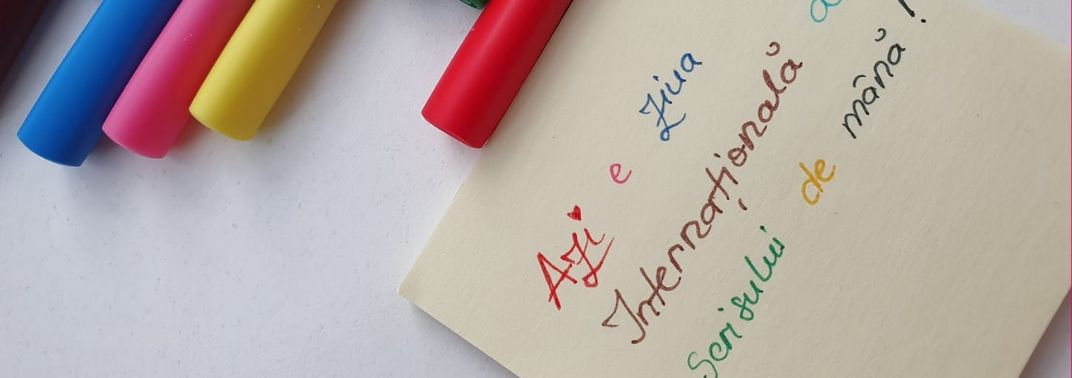 Azi e Ziua
Internațională a
Scrisului de mână!